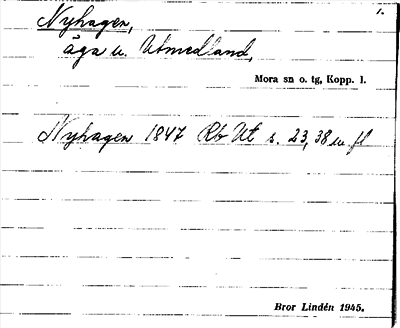 1.
Nyhagen,
äga u. Utmedland,
Mora sn o. tg, Kopp. l.
Nyhagen 1847 Rb Ut s. 23, 38 m. fl
Bror Lindén 1945.